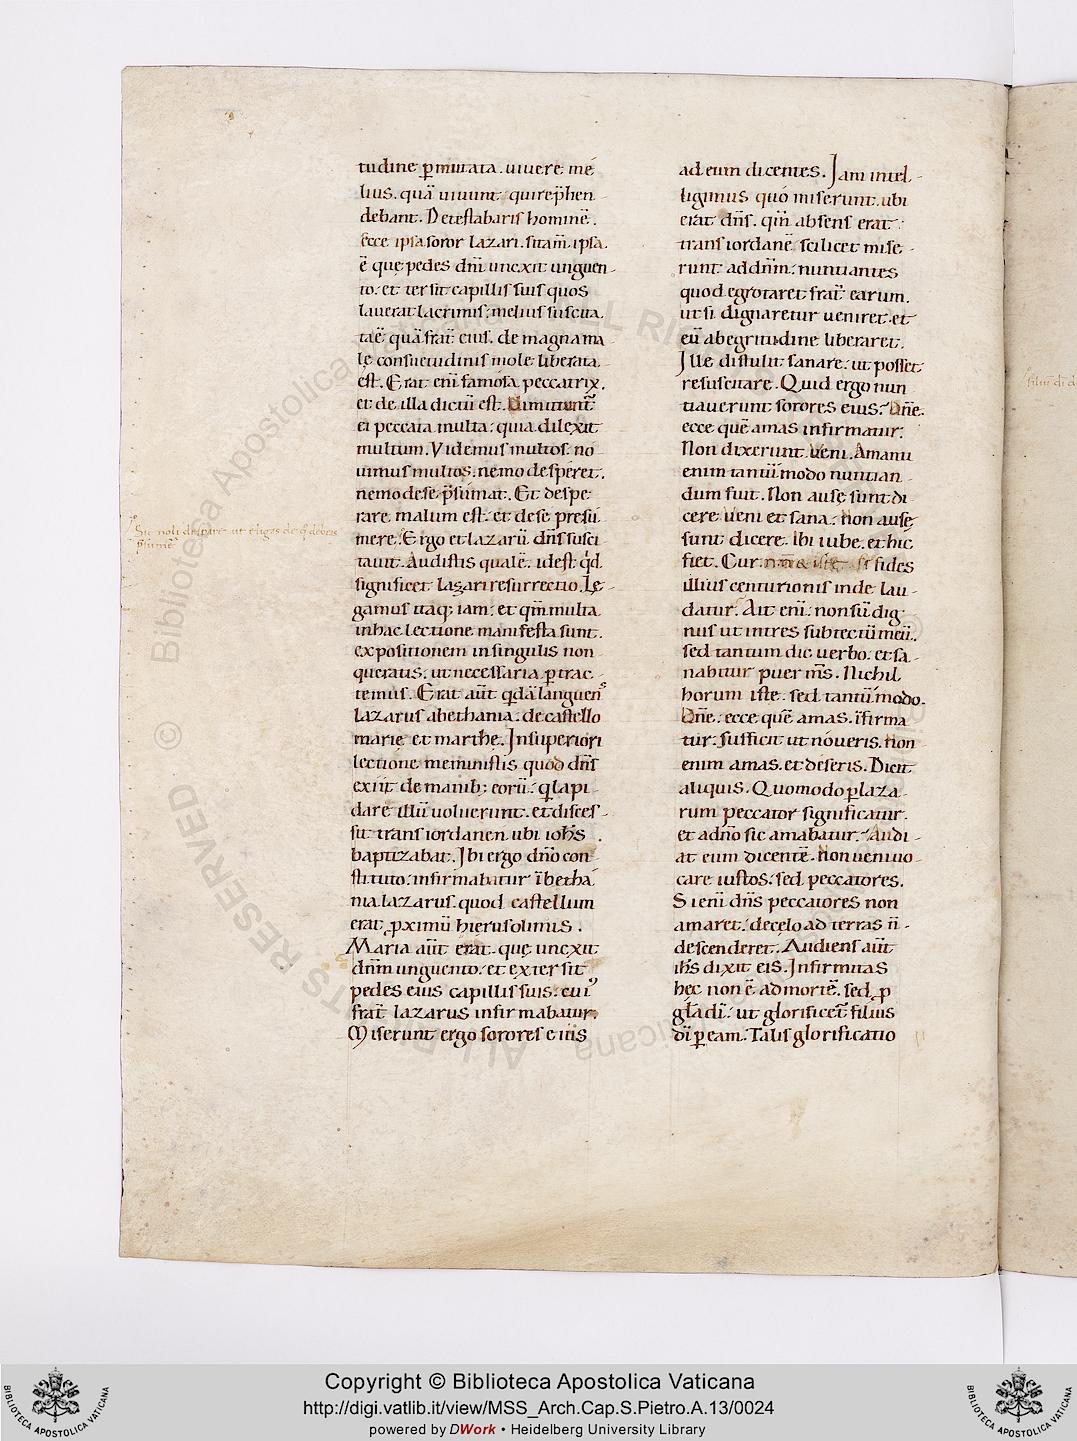 tudine p̱mutata. uiuere me
lius. quã uiuunt quirep̃hen
debant. Detestabaris hominẽ.
ecce ipsa soror lazari. sitam̃. ipsa
ẽ quę pedes dñi uncxit unguen
to. et tersit capillis suis quos
lauerat lacrimis: melius suscita
taẽ quã frat̃ eius. de magna ma
le consuetudinis mole liberata
est. Erat eni famosa peccatrix.
et de illa dictũ est. Dimittunt̃
ei peccata multa: quia dilexit
multum. Videmus multos. no
uimus multos. nemo desperet.
nemo dese p̃sumat. Et despe
rare malum est. et dese presu
mere. Ergo et lazarũ dñs susci
tauit. Audistis qualẽ. idest q̇d
significet lazari resurrectio. Le
gamus itaq; iam: et qm̃ multa
inhac lectione manifesta sunt.
expositionem insingulis non
queratis. ut necessaria p̱trac
temus. Erat aut̃ q̇dã languens
lazarus abethania. de castello
marię et marthę. Insuperiori
lectione meministis quod dñs
exiit de manib; eorũ: q̇ lapi
dare illũ uoluerunt. et disces
sit trans iordanen. ubi iohs
baptizabat. Ibi ergo dño con
stituto: infirmabatur ĩbetha
nia lazarus. quod castellum
erat p̱ximũ hierusolimis.
Maria aut̃ erat. quę uncxit
dñm unguento. et extersit
pedes eius capillis suis. cui'
frat̃ lazarus infirmabatur.
Miserunt ergo sorores eius
ad eum dicentes. Iam intel
ligimus quo miserunt. ubi
erat dñs. qm̃ absens erat
trans iordanẽ scilicet mise
runt ad dñm: nuntiantes
quod egrotaret frat̃ earum.
ut si dignaretur ueniret. et
eũ abegritudine liberaret.
Ille distulit sanare: ut posset
resuscitare. Quid ergo nun
tiauerunt sorores eius? Dñe.
ecce quẽ amas infirmatur.
Non dixerunt. Veni. Amanti
enim tantũmodo nuntian
dum fuit. Non ausę sunt di
cere. Veni et sana. Non ausę
sunt dicere. Ibi iube. et hic
fiet. Cur fides
illius centurionis inde lau
datur. Ait eni: non sũ dig
nus ut intres sub tectũ meũ.
sed tantum dic uerbo. et sa
nabitur puer ms̃. Nichil
horum iste. sed tantũmodo.
Dñe: ecce quẽ amas. ĩfirma
tur. Sufficit ut noueris. non
enim amas. et deseris. Dicit
aliquis. Quomodo p̱ laza
rum peccator significatur.
et adño sic amabatur? Audi
at eum dicentẽ. Non ueni uo
care iustos: sed peccatores.
Si eni dñs peccatores non
amaret. decelo ad terras ñ
descenderet. Audiens aut̃
ihs dixit eis. Infirmitas
hec non ẽ ad mortẽ. sed p̱
glã di: ut glorificet̃ filius
di p̱ eam. Talis glorificatio
Copyright © Biblioteca Apostolica Vaticana
http://digi.vatlib.it/view/MSS_Arch.Cap.S.Pietro.A.13/0024
powered by DWork • Heidelberg University Library